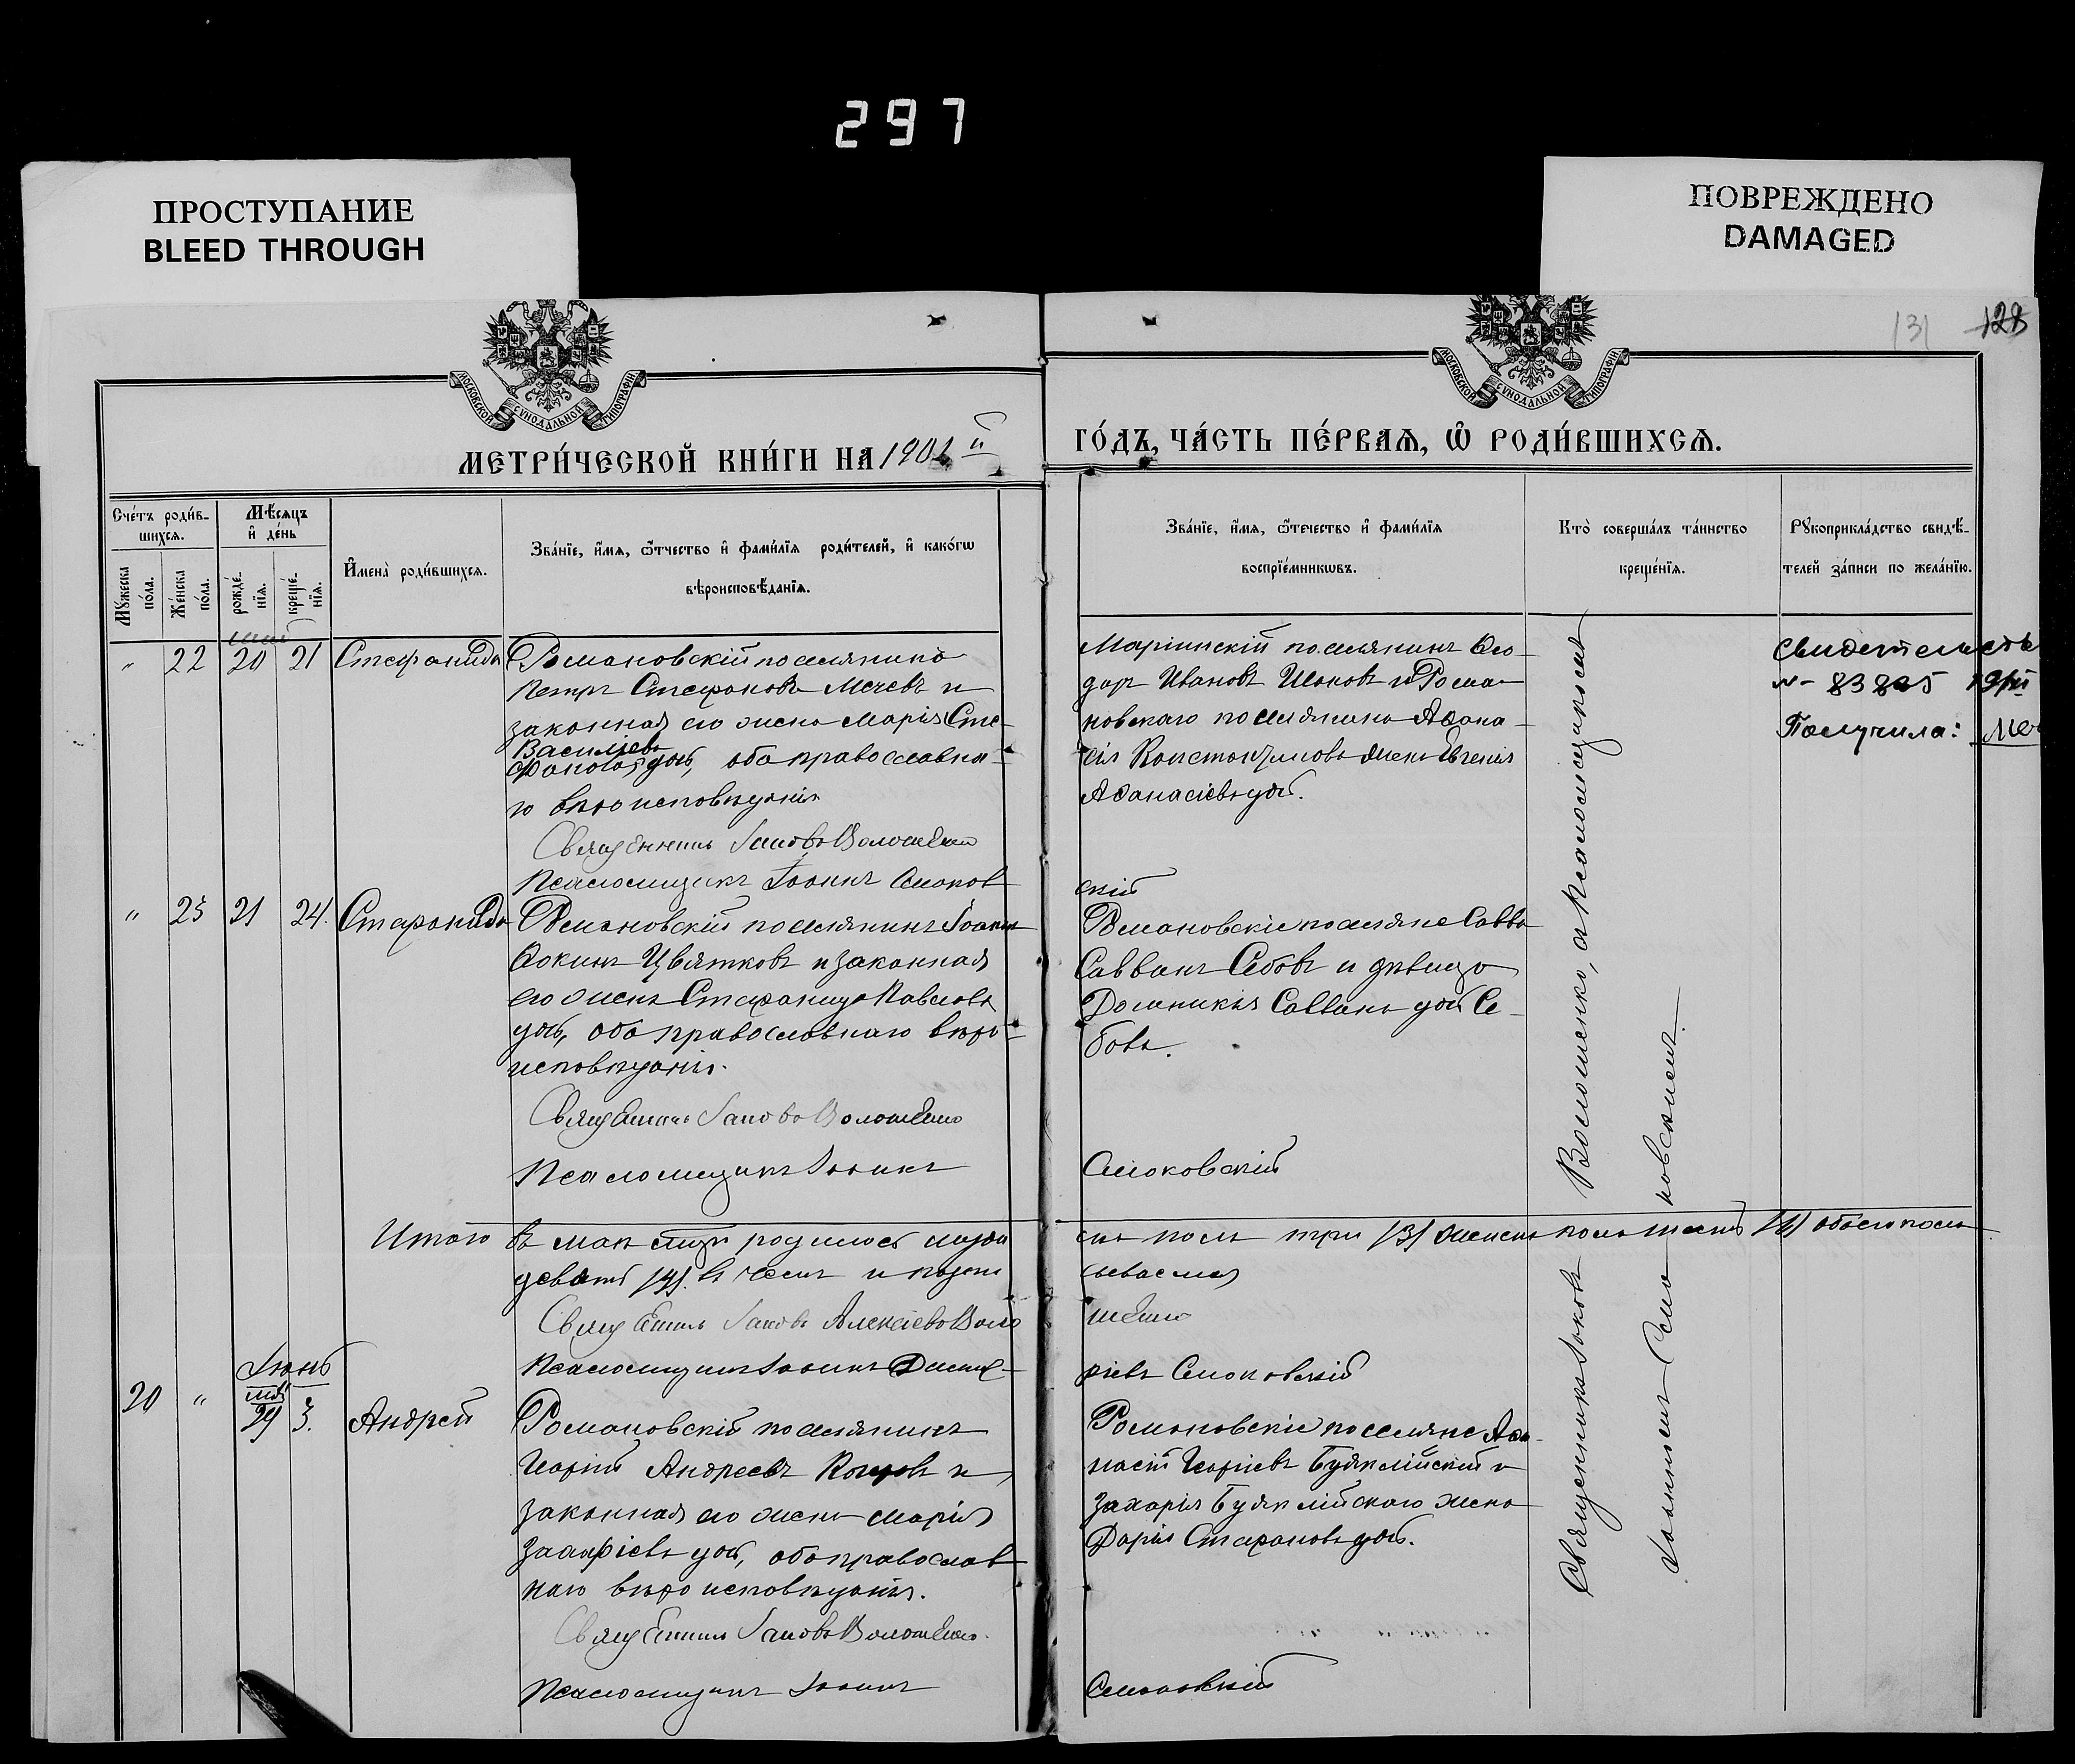 297
ПРОСТУПАНИЕ
BLEED THROUGH
ПОВРЕЖДЕНО
DAMAGED
131 128
МОСКОВСКОЙ СѴНОДАЛЬНОЙ ТИПОГРАФІИ
МОСКОВСКОЙ СѴНОДАЛЬНОЙ ТИПОГРАФІИ
МЕТРИ́ЧЕСКОЙ КНИ́ГИ НА 1902 й
ГО́ДЪ, ЧА́СТЬ ПЕ́РВАѦ, Ѡ҆ РОДИ́ВШИХСѦ.
Сче́тъ роди́в-
шихсѧ.
Мꙋ́жеска по́ла.
Же́нска по́ла.
Мѣ́сѧцъ
и҆ де́нь
рожде́-нїѧ.
креще́-нїѧ.
И҆мена̀ роди́вшихсѧ.
Зва́нїе, и҆́мѧ, ѻ҆́тчество и҆ фами́лїѧ роди́телей, и҆ како́гѡ
вѣроисповѣ́данїѧ.
Зва́нїе, и҆́мѧ, ѻ҆те́чество и҆ фами́лїѧ
воспрїе́мникѡвъ.
Кто̀ соверша́лъ та́инство
креще́нїѧ.
Рꙋкоприкла́дство свидѣ́-
телей за́писи по жела́нїю.
" 22 20 21 Стефанида
Романовскій поселянинъ
Петръ Стефановъ Мечевъ и
законная его жена Марія Сте-
Васильева
фанова дочь, оба православна-
го вѣроисповѣданія
Священникъ Іаковъ Волошенко
Псаломщикъ Іоаннъ Смоков
скій
Маріинскій поселянинъ Ѳео-
доръ Ивановъ и Рома-
новскаго поселянина Аѳана-
сія Константинова жена Евгенія
Аѳанасіева дочь.
Свидетельств
№ 83805
Получила: Меч
" 23 21 24. Стефанида
Романовскій поселянинъ Іоаннъ
Ѳокинъ Цвятковъ и законная
его жена Стефанида Павлова
дочь, оба православнаго вѣро-
исповѣданія.
Священникъ Іаковъ Волошенко
Псаломщикъ Іоаннъ
Смоковскій
Романовскіе поселяне Савва
Саввинъ Себовъ и дѣвица
Доминикія Саввина дочь Се-
бова.
Итого въ маѣ м-цѣ родилось мужес
ска пола три /3/ женска пола шесть /6/ обоего пола
девять /9/. въ чемъ и подпи
сываемся
Священникъ Іаковъ Алексіевъ Воло
шенко
Псаломщикъ Іоаннъ Димит-
ріевъ Смоковскій
Іюнь
май
20 " 29 3. Андрей
Романовскій поселянинъ
Георгій Андреевъ и
законная его жена Марія
Захаріева дочь, оба православ
наго вѣроисповѣданія.
Священникъ Іаковъ Волошенко.
Псаломщикъ Іоаннъ
Смоковскій
Романовскіе поселяне Аѳа-
насій Георгіевъ Буджмійскій и
Захарія Буджмійскаго жена
Дарія Стефанова дочь.
Священникъ Іаковъ Волошенко, а псаломщикомъ
Іоанномъ Смоковскимъ.